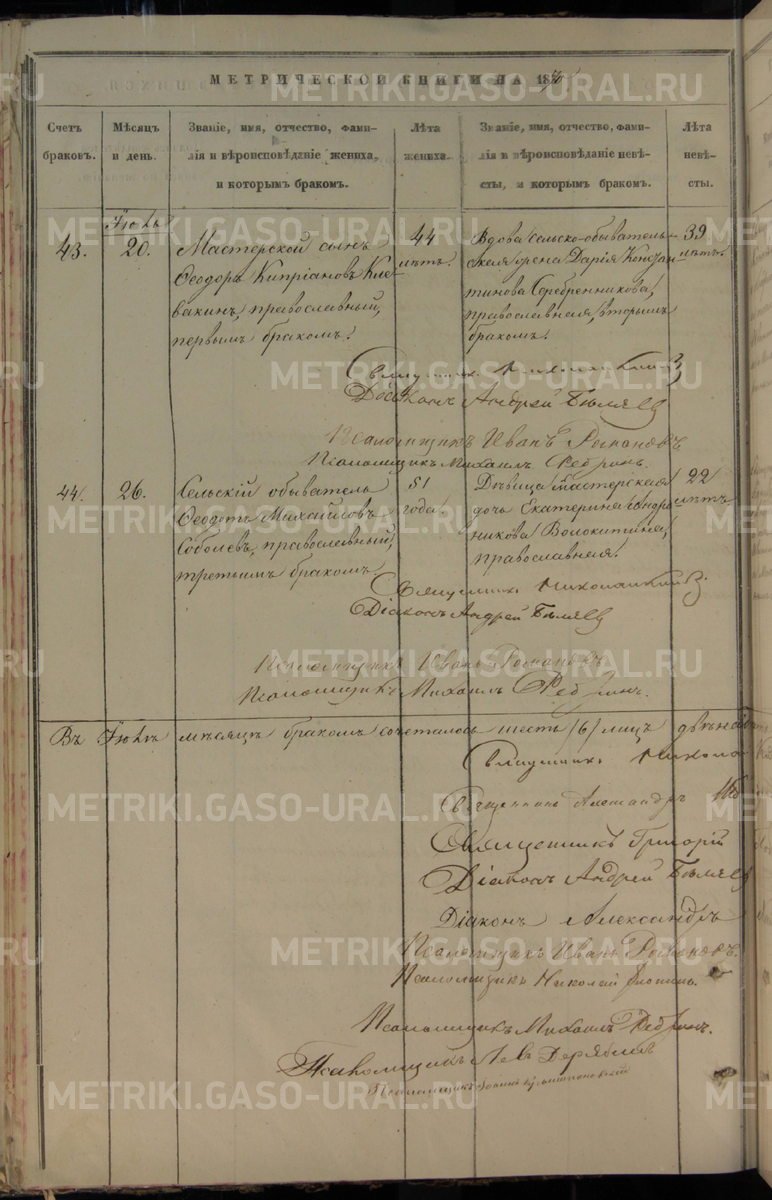 МЕТРИЧЕСКОЙ КНИГИ НА 1870
Счетъ браковъ.
Мѣсяцъ и день.
Званіе, имя, отчество, фами-
лія и вѣроисповѣданіе жениха,
и которымъ бракомъ.
Лѣта жениха.
Званіе, имя, отчество, фами-
лія и вѣроисповѣданіе невѣ-
сты, и которымъ бракомъ.
Лѣта невѣ-
сты.
43.
Іюль
20.
Мастерской сынъ
Ѳеодоръ Кипріановъ Кле-
вакинъ, православный,
первымъ бракомъ.
44
лѣтъ.
Вдова сельско-обыватель-
ская жена Дарія Констан-
тинова Серебренникова,
православная, вторымъ
бракомъ.
39
лѣтъ.
Священникъ
Діаконъ Андрей Бѣляевъ
Псаломщикъ Иванъ Романовъ
Псаломщикъ Михаилъ Ребринъ.
44.
26.
Сельскій обыватель
Ѳеодотъ Михайловъ
Соболевъ, православный,
третьимъ бракомъ
51
года.
Дѣвица мастерская
дочь Екатерина Андро-
никова Волокитина,
православная.
22
лѣтъ
Священникъ
Діаконъ Андрей Бѣляевъ
Псаломщикъ Иванъ Романовъ
Псаломщикъ Михаилъ Ребринъ.
Въ Іюлѣ мѣсяцѣ бракомъ сочеталось шесть /6/ лицъ двѣнад
Священникъ Никола
Священникъ Александръ
Священникъ Григорій
Діаконъ Андрей Бѣляевъ
Діаконъ Александръ
Псаломщикъ Иванъ Романовъ.
Псаломщикъ Николай
Псаломщикъ Михаилъ Ребринъ.
Псаломщикъ Левъ Дерябинъ
Псаломщикъ
METRIKI.GASO-URAL.RU